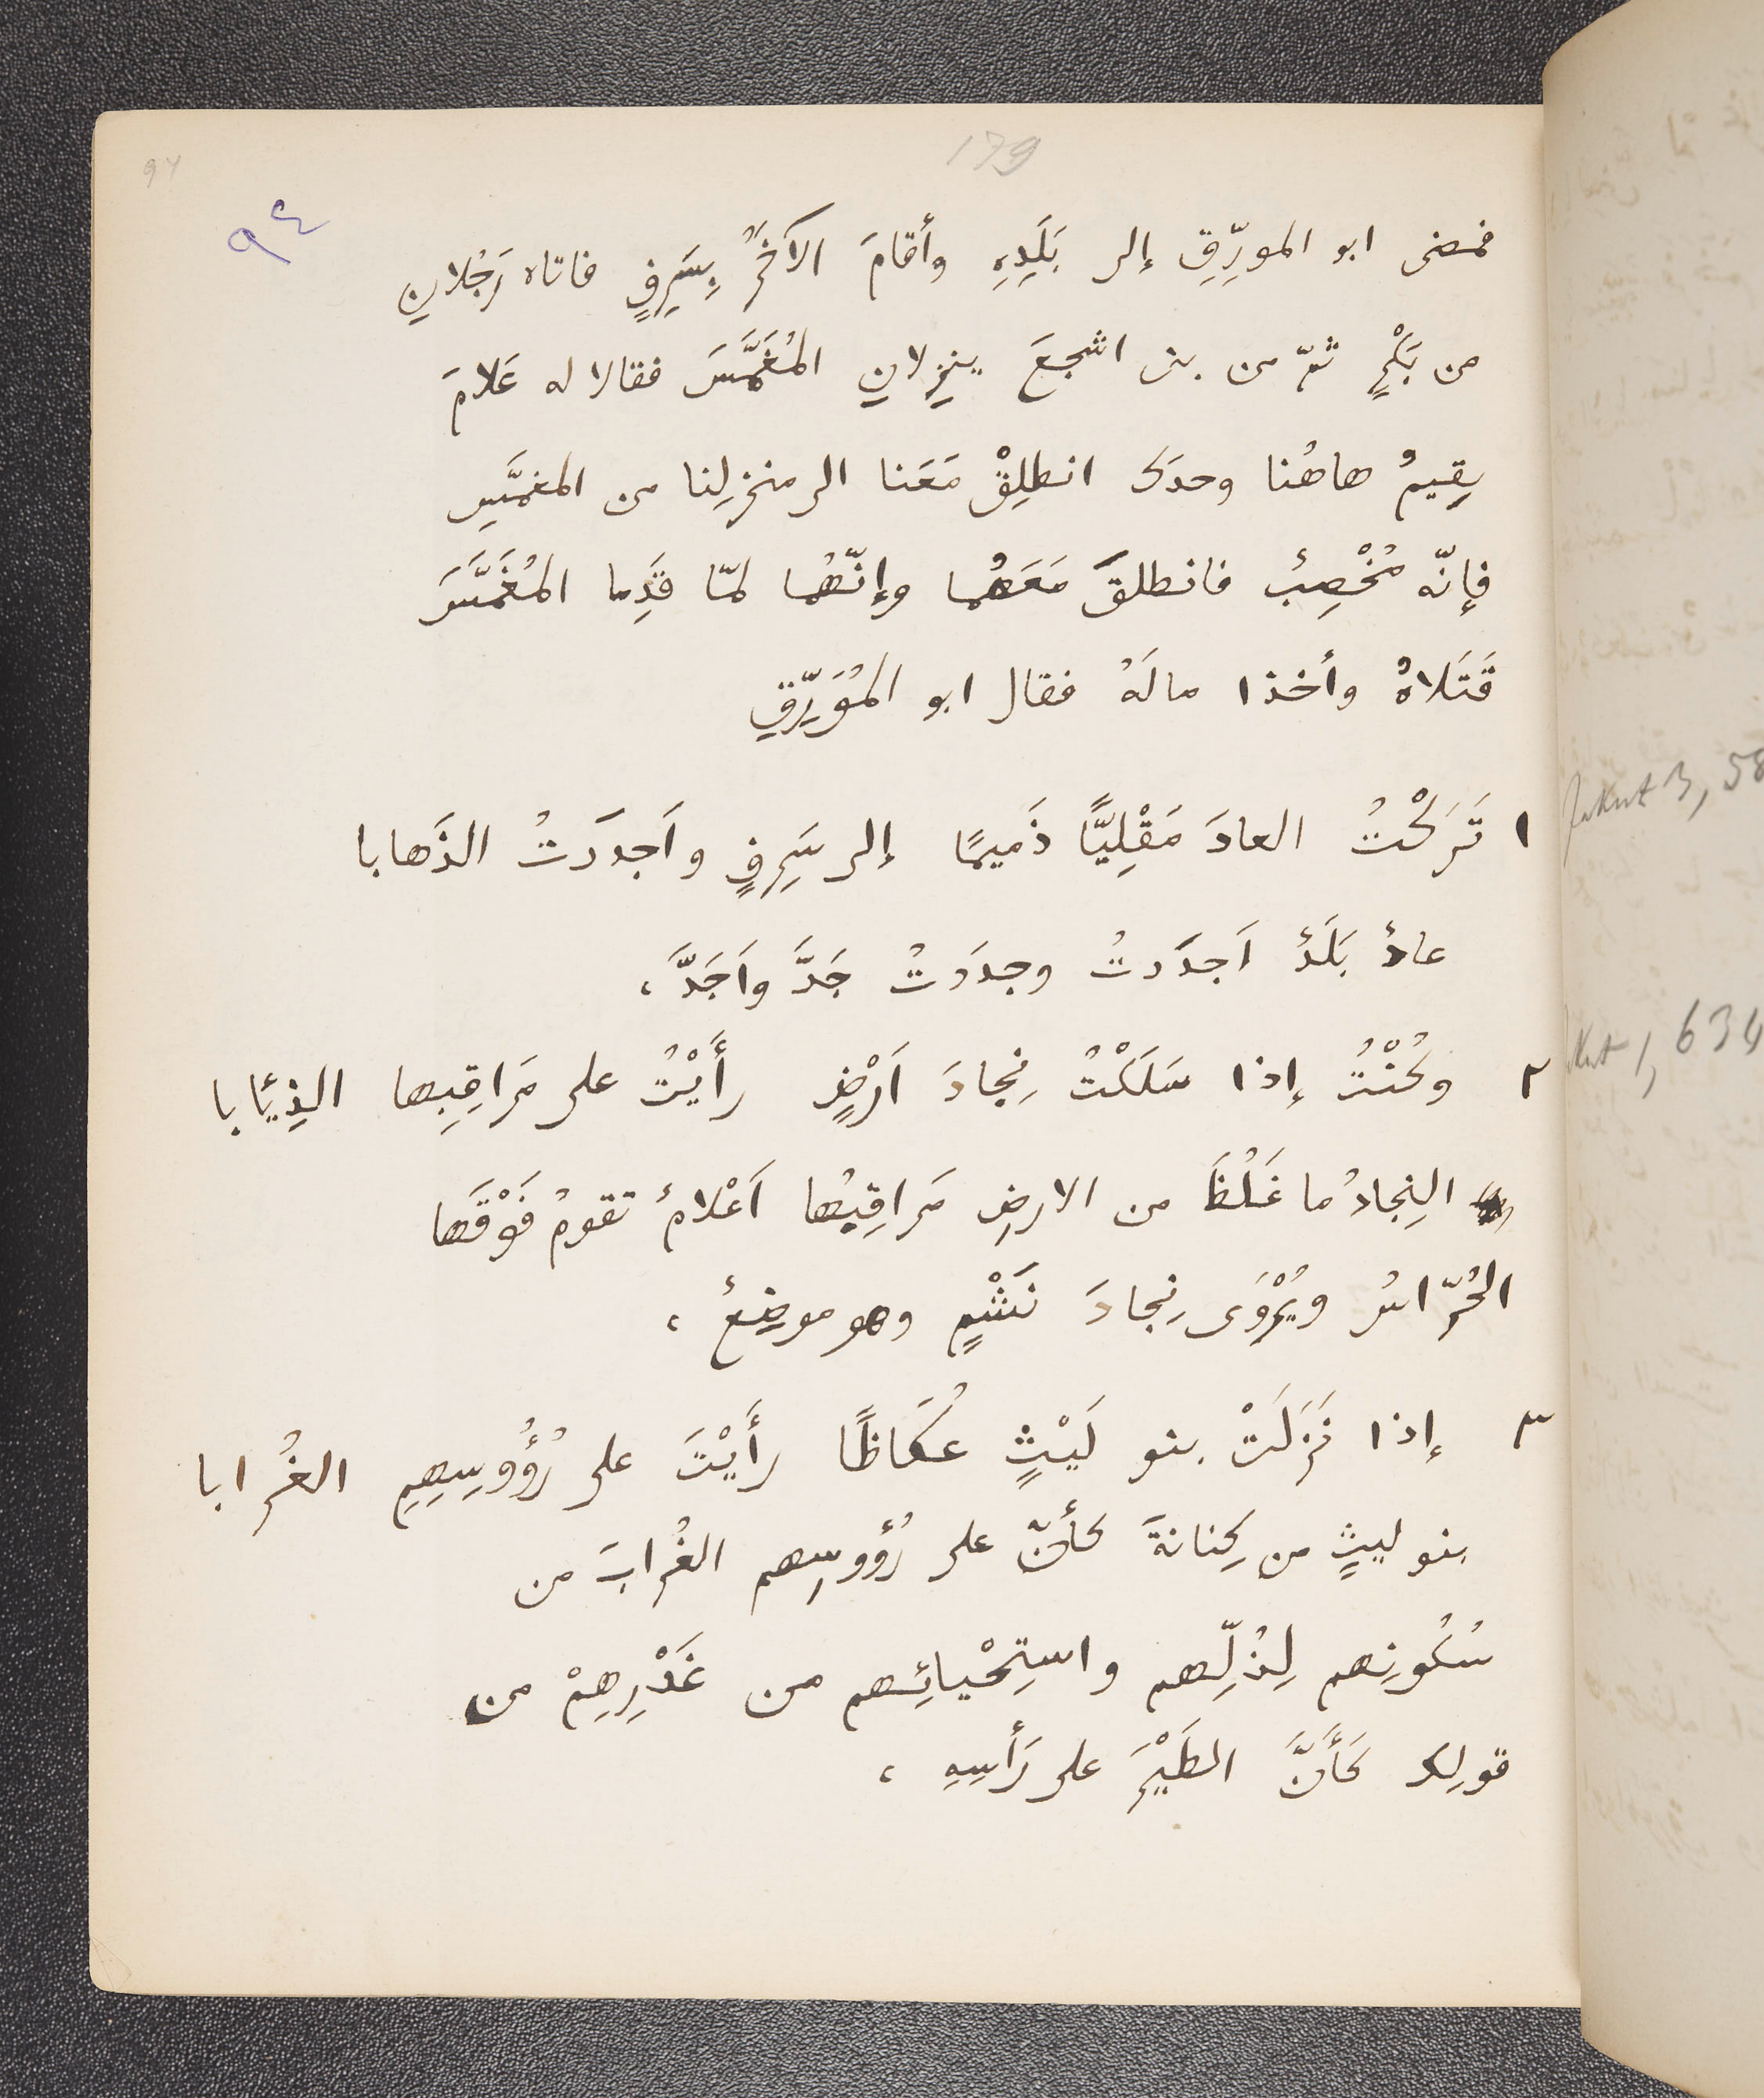 179
94
٩٤
فمضى ابو المورِّقِ إلى بَلَدِهِ وأقامَ الآخَرُ بِسَرِفٍ فاتاه رَجُلانِ
من بَكْرٍ ثمّ من بنى اشجعَ ينزِلانِ المُغَمَّسَ فقالا له عَلامَ
يقِيمُ هاهُنا وحدَك انطلِقْ مَعَنا الى منزِلِنا من المغمَّسِ
فإنّه مُخْصِبٌ فانطلقَ مَعَهُما وإنّهُما لمّا قَدِما المُغَمَّسَ
قَتَلاهُ وأخذا مالَهُ فقال ابو المُوَرِّقِ
١ تَرَكْتُ العادَ مَقْلِيًّا ذَمِيمًا إلى سَرِفٍ واَجدَدتُ الذَهابا
عادٌ بَلَدٌ اَجدَدتُ وجدَدتُ جَدَّ واَجَدَّ،
٢ وكُنْتُ إذا سَلَكْتُ نِجادَ اَرْضٍ رأَيْتُ على مَراقِبِها الذِئابا
النِجادُ ما غَلُظَ من الارضِ مَراقِبُها اَعْلامٌ تقومُ فَوْقَها
الحُرّاسُ ويُرْوَى نِجادَ نَشْمٍ وهو موضِعٌ،
٣ إذا نَزَلَتْ بنو لَيْثٍ عُكاظًا رأَيْتَ على رُؤُوسِهِمِ الغُرابا
بنو ليثٍ من كِنانةَ كأنّ على رُؤوسِهم الغُرابَ من
سُكُونِهم لِذُلِّهم واستِحْيائِهم من غَدْرِهِمْ من
قولِك كَأَنَّ الطَيْرَ على رَأسِهِ،
Jakut 3, 58
kut 1, 634